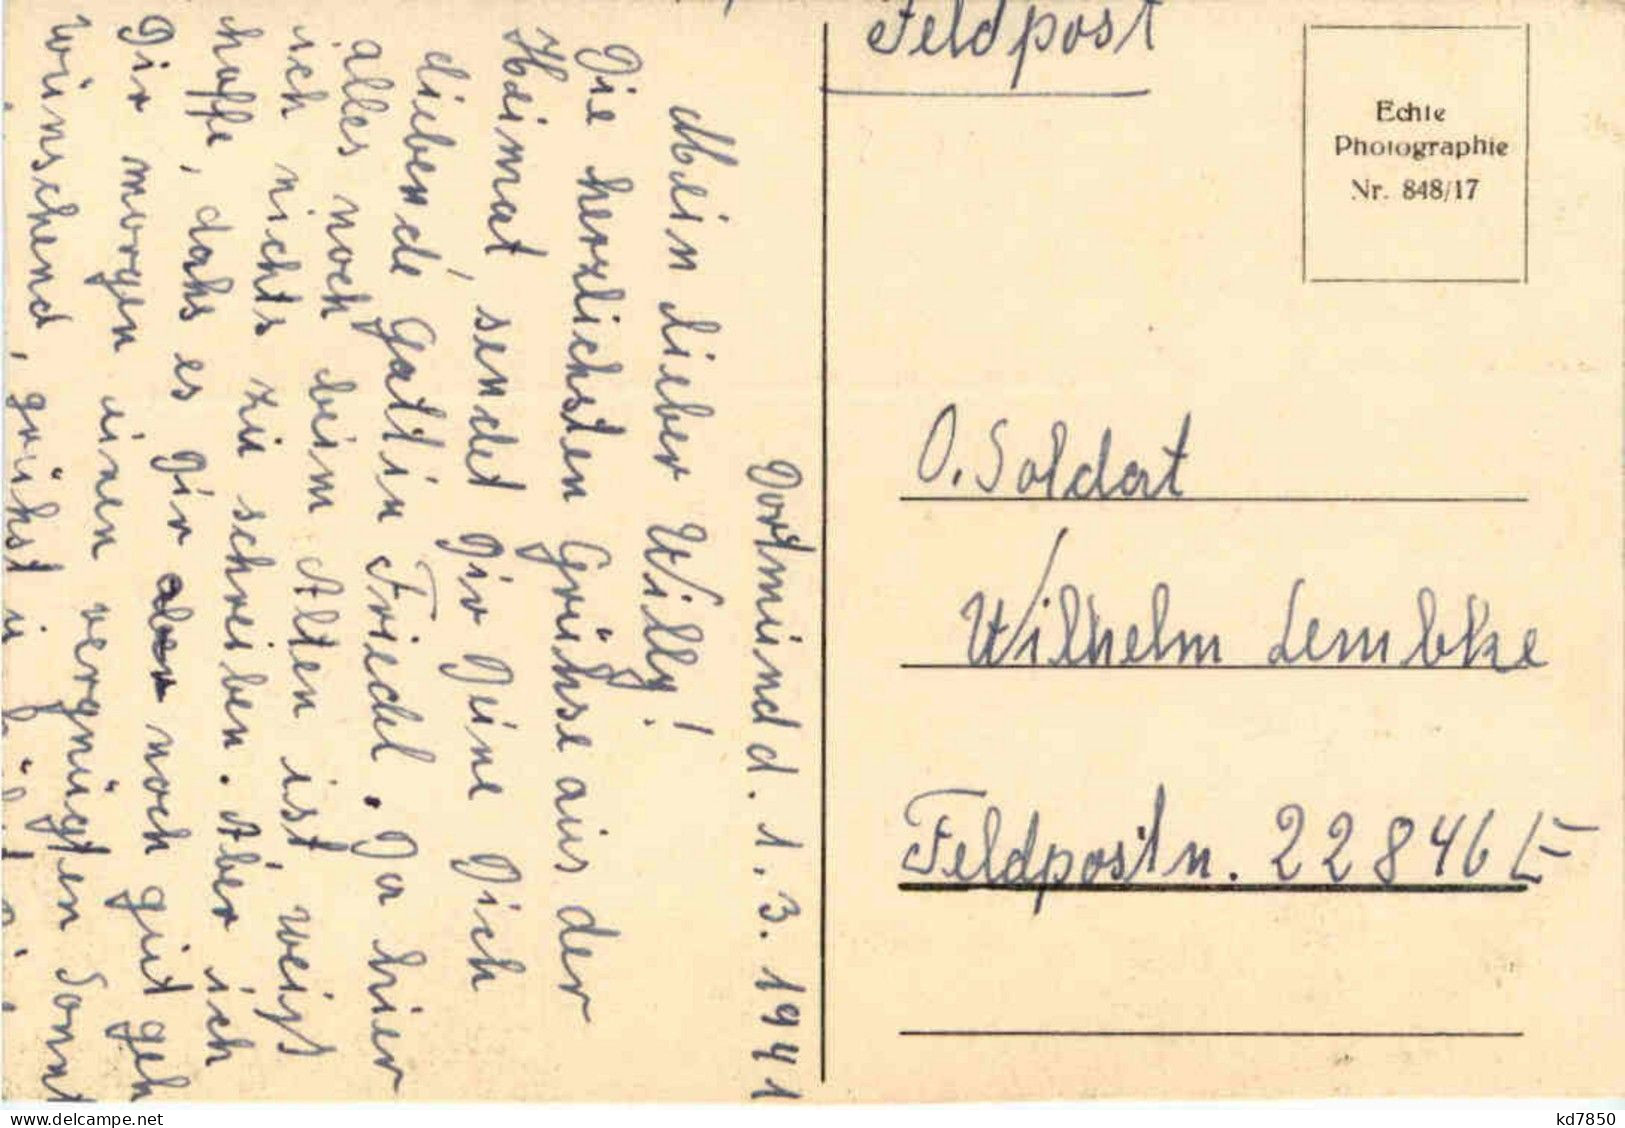 Feldpost
Echte
Photographie
Nr. 848/17
O. Soldat
Wilhelm Lembke
Feldpostn. 22846 E
Dortmund d. 1. 3. 1941
Mein lieber Willy!
Die herzlichsten Grühse aus der
Heimat, sendet Dir Deine Dich
liebende Gattin Friedel. Da hier
alles noch beim Alten ist, weihs
ich nichts zu schreiben. Aber ich
hoffe, dahs es Dir aber noch gut geh
Dir morgen einen vergnügten Sonnt
wünschend, grühst u.
www.delcampe.net
kd7850